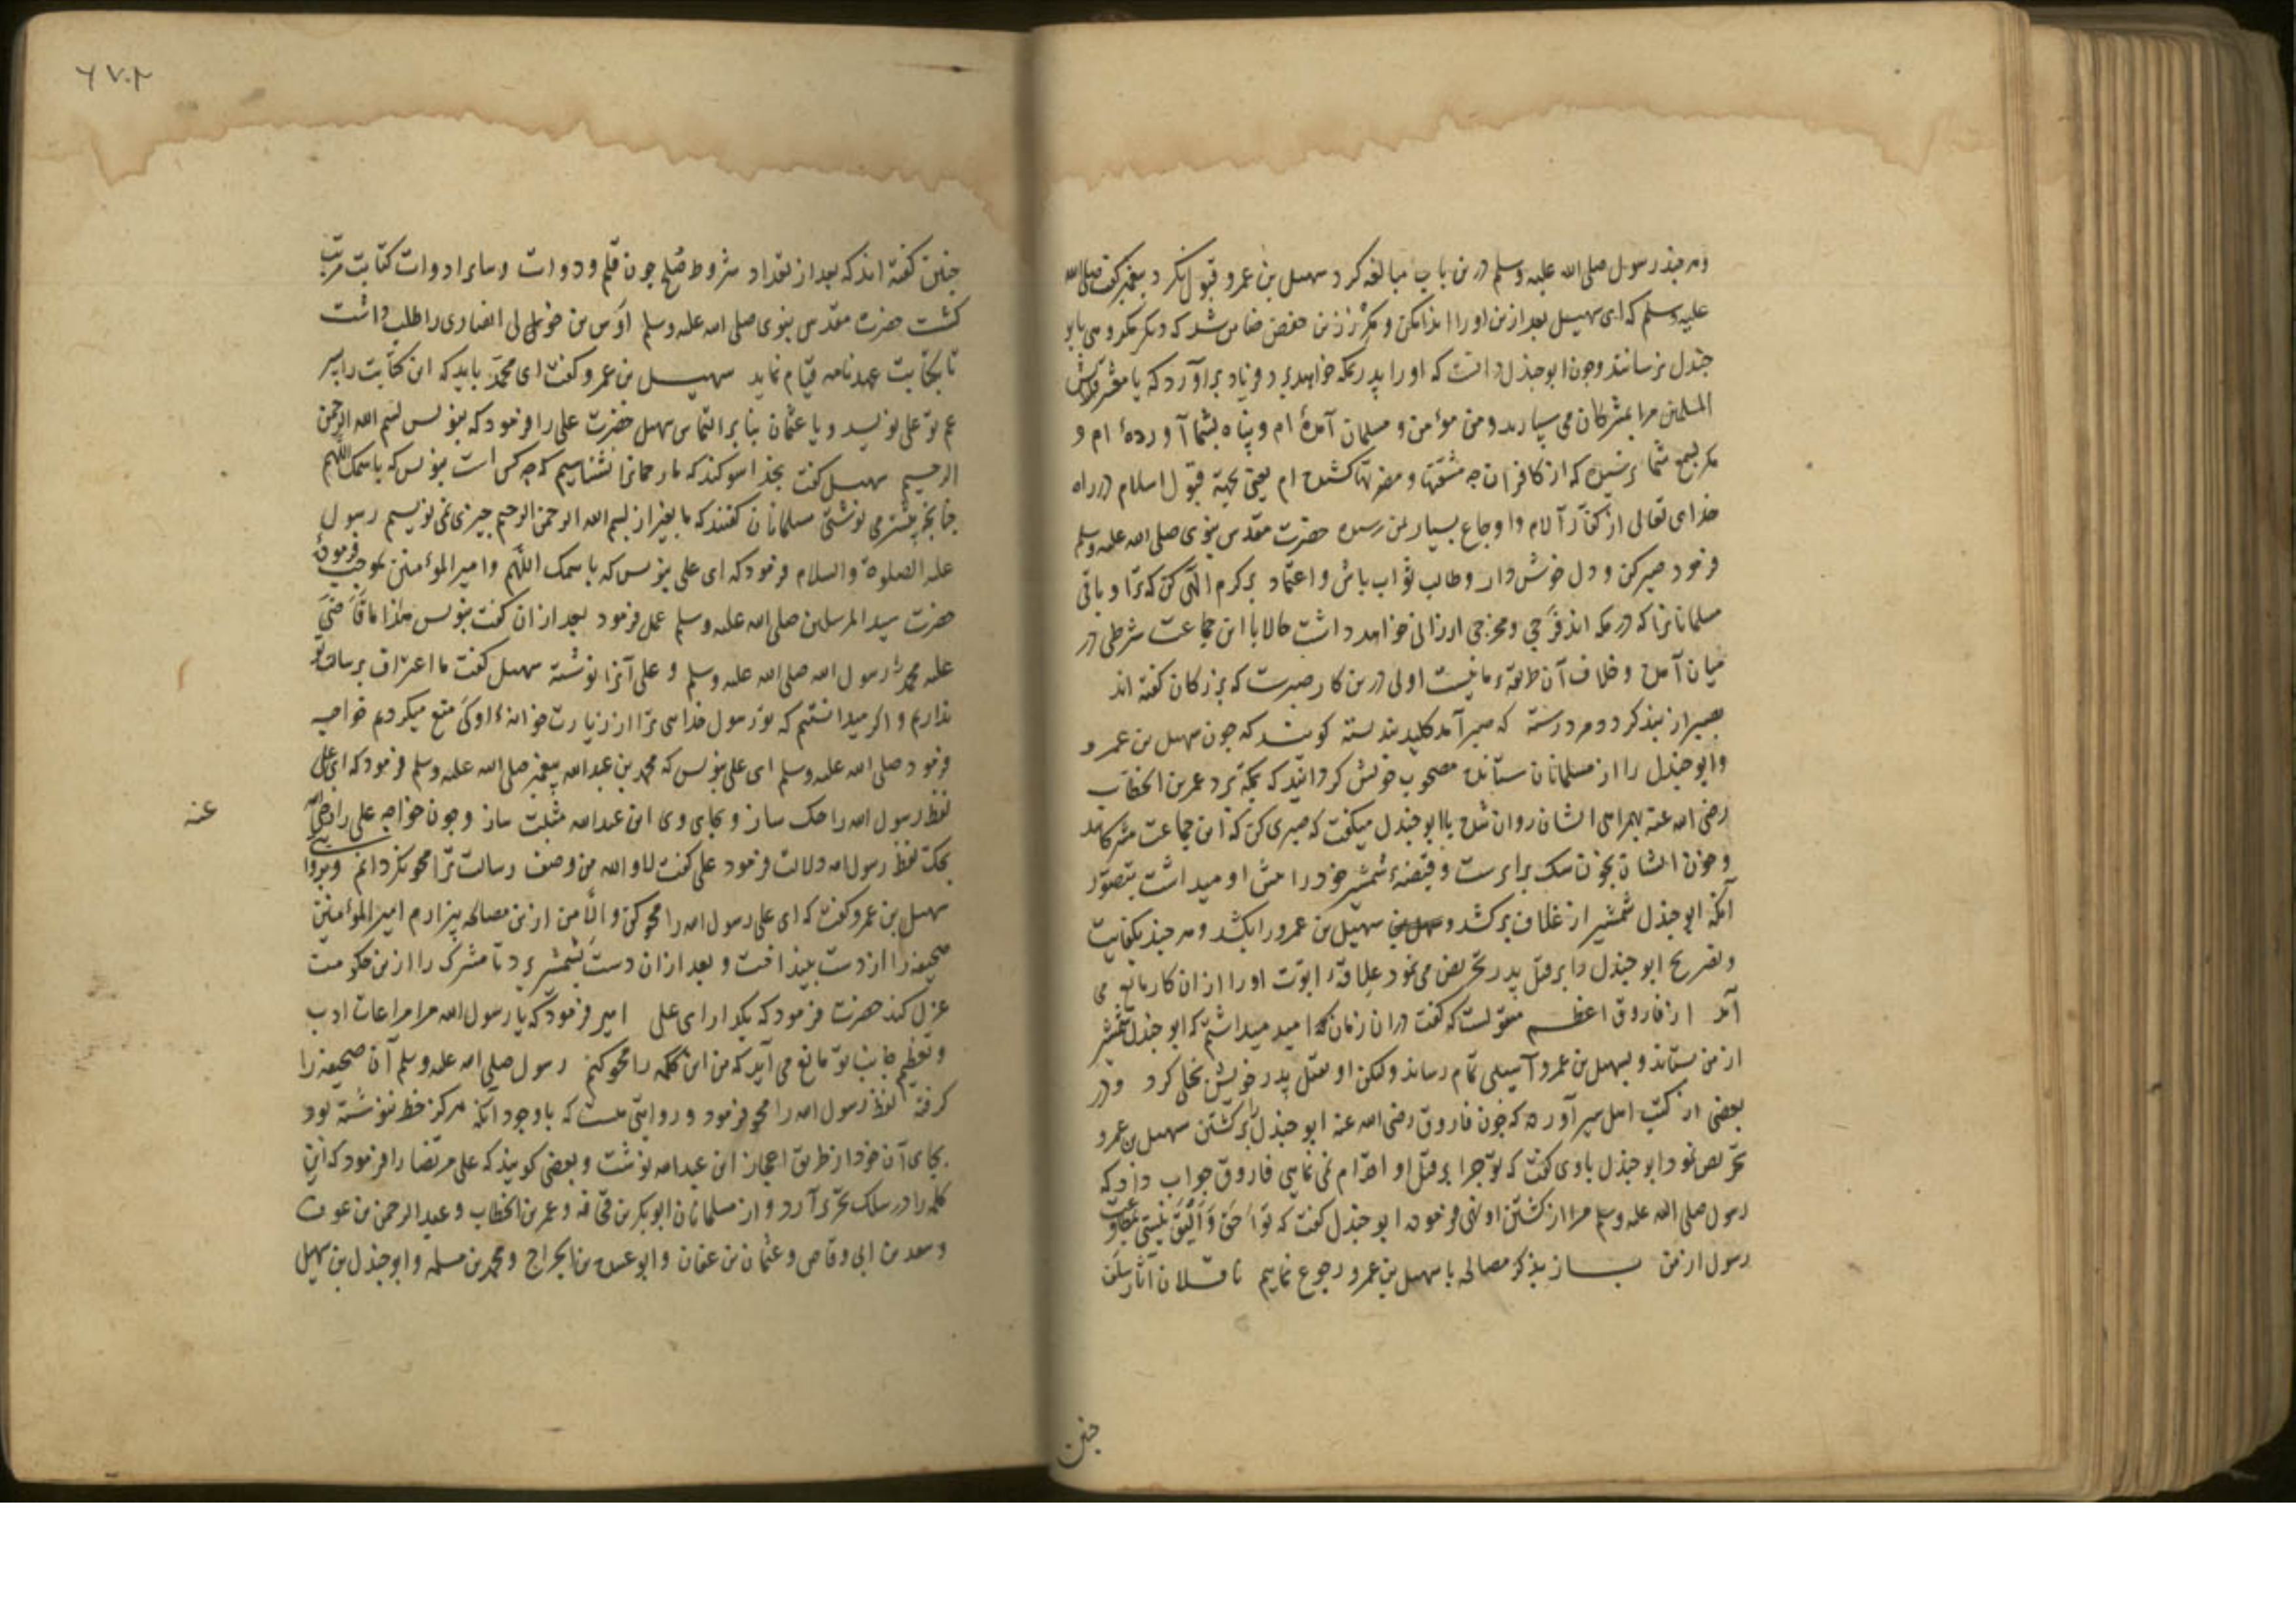 وهر چند رسول صلی الله علیه وسلم درین باب مبالغه کرد سهیل بن عمرو قبول نکرد پیغمبر گفت صلی الله
علیه وسلم که ای سهیل بعد ازین او را ایذا مکن و مکرز بن حفص ضامن شد که دیگر مکروهی بابو
جندل نرسانند وچون ابو جندل دانست که او را پدر بمکه خواهد برد فریاد برآورد که یا معشر
المسلمین مرا بمشرکان می سپارید ومن مؤمن و مسلمان آمده ام و پناه بشما آورده ام و
مگر بسمع شما نرسیده که از کافران چه مشقتها و مضرتها کشیده ام یعنی بجهة قبول اسلام در راه
خدای تعالی از کفار آلام و اوجاع بسیار بمن رسیده حضرت مقدس نبوی صلی الله علیه وسلم
فرمود صبر کن و دل خوش دار وطالب ثواب باش و اعتماد بر کرم الهی کن که ترا و باقی
مسلمانانرا که در مکه اند فرجی ومخرجی ارزانی خواهد داشت حالا با این جماعت شرطی در
میان آمده و خلاف آن طریقهٔ ما نیست اولی درین کار صبرست که بزرگان گفته اند
بصبر از بند گردد مرد رسته که صبر آمد کلید بند بسته گویند که چون سهیل بن عمرو
وابو جندل را از مسلمانان ستانده مصحوب خویش گردانید که بمکه برد عمر بن الخطاب
رضی الله عنه بهمراهی ایشان روان شده با ابو جندل میگفت که صبری کن که این جماعت مشرکانند
وخون ایشان بخون سگ برابرست و قبضهٔ شمشیر خود را پیش او میداشت بتصور
آنکه ابو جندل شمشیر از غلاف برکشد و سهیل بن عمرو را بکشد وهر چند بکنایت
وتصریح ابو جندل را بر قتل پدر تحریض می نمود علاقهٔ ابوّت او را از آن کار مانع می
آمد از فاروق اعظم منقولست که گفت در آن زمان که امید میداشتم که ابو جندل شمشیر
از من بستاند و بسهیل بن عمرو آسیبی تمام رساند ولیکن او بقتل پدر خویش بخلی کرد ودر
بعضی از کتب اهل سیر آورده که چون فاروق رضی الله عنه ابو جندل را بر کشتن سهیل بن عمرو
تحریص نمود ابو جندل باوی گفت که تو چرا بر قتل او اقدام نمی نمایی فاروق جواب داد که
رسول صلی الله علیه وسلم مرا از کشتن او نهی فرموده ابو جندل گفت که تو احق وَاَلیَق نیستی بمتابعت
رسول از من باز بذکر مصالحه با سهیل بن عمرو رجوع نماییم ناقلان آثار سلف
چنین
۶۷۰۲
چنین گفته اند که بعد از تعداد شروط صلح چون قلم و دوات وسایر ادوات کتابت مرتب
گشت حضرت مقدس نبوی صلی الله علیه وسلم اوس بن خولی انصاری را طلب داشت
تا بکتابت عهدنامه قیام نماید سهیل بن عمرو گفت ای محمد باید که این کتابت را پسر
عم تو علی نویسد و یا عثمان بنا بر التماس سهیل حضرت علی را فرمود که بنویس بسم الله الرحمن
الرحیم سهیل گفت بخدا سوگند که ما رحمانرا نشناسیم که چه کس است بنویس که باسمک اللهم
چنانچه پیشتر می نوشتی مسلمانان گفتند که ما بغیر از بسم الله الرحمن الرحیم چیزی نمی نویسیم رسول
علیه الصلوة والسلام فرمود که ای علی بنویس که باسمک اللهم وامیر المؤمنین بموجب فرمودهٔ
حضرت سید المرسلین صلی الله علیه وسلم عمل فرمود بعد از آن گفت بنویس هذا ما قاضی
علیه محمد رسول الله صلی الله علیه وسلم و علی آنرا نوشته سهیل گفت ما اعتراف برسالت تو
نداریم و اگر میدانستیم که تو رسول خدایی ترا از زیارت خانهٔ او کی منع میکردیم خواجه
فرمود صلی الله علیه وسلم ای علی بنویس که محمد بن عبدالله پیغمبر صلی الله علیه وسلم فرمود که ای علی
لفظ رسول الله را حک ساز و بجای وی ابن عبدالله مثبت ساز وچون خواجه علی را رضی الله
عنه
بحک لفظ رسول الله دلالت فرمود علی گفت لا والله من وصف رسالت ترا محو نگردانم
سهیل بن عمرو گفت که ای علی رسول الله را محو کن و الّا من ازین مصالحه بیزارم امیر المؤمنین
صحیفه را از دست بینداخت و بعد از آن دست بشمشیر برد تا مشرک را ازین حکومت
عزل کند حضرت فرمود که بگذار ای علی امیر فرمود که یا رسول الله مرا مراعات ادب
وتعظیم جانب تو مانع می آید که من این کلمه را محو کنم رسول صلی الله علیه وسلم آن صحیفه را
گرفته لفظ رسول الله را محو فرمود و روایتی هست که باوجود آنکه هرگز خط ننوشته بود
بجای آن خود از طریق اعجاز ابن عبدالله نوشت و بعضی گویند که علی مرتضا را فرمود که این
کلمه را در سلک تحریر آرد و از مسلمانان ابوبکر بن قحافه و عمر بن الخطاب و عبد الرحمن بن عوف
وسعد بن ابی وقاص و عثمان بن عفان وابو عبیده بن الجراح ومحمد بن مسلمه وابو جندل بن سهیل